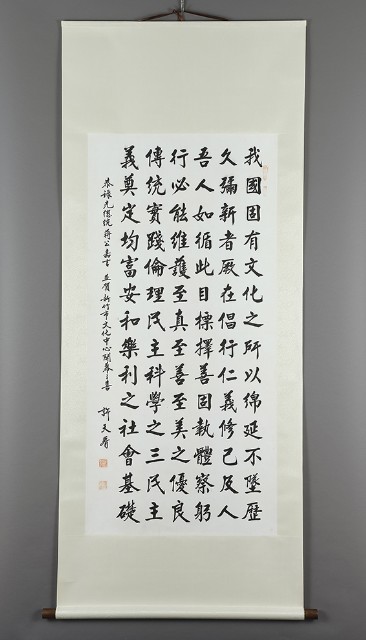 我國固有文化之所以綿延不墜歷
久彌新者厥在倡行仁義修己及人
吾人如循此目標擇善固執體察躬
行必能維護至真至善至美之優良
傳統實踐倫理民主科學之三民主
義奠定均富安和樂利之社會基礎
恭錄先總統蔣公嘉言 並賀新竹市文化中心開幕之喜 許天